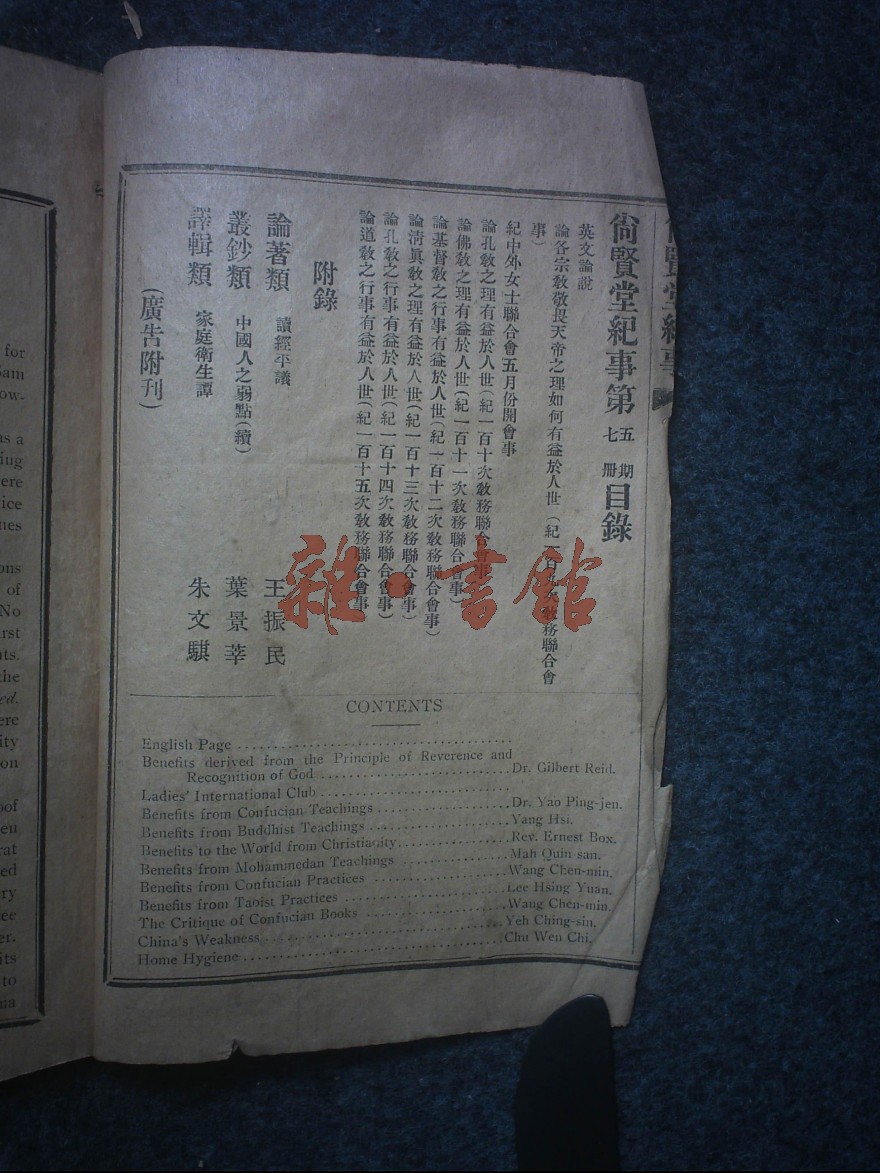 尙賢堂紀事第七册五期目錄
英文論說
論各宗敎敬畏天帝之理如何有益於人世(紀一百九次敎務聯合會
事)
紀中外女士聯合會五月份開會事
論孔敎之理有益於人世(紀一百十次敎務聯合會事)
論佛敎之理有益於人世(紀一百十一次敎務聯合會事)
論基督敎之行事有益於人世(紀一百十二次敎務聯合會事)
論淸眞敎之理有益於人世(紀一百十三次敎務聯合會事)
論孔敎之行事有益於人世(紀一百十四次敎務聯合會事)
論道敎之行事有益於人世(紀一百十五次敎務聯合會事)
附錄
論著類 讀經平議 王振民
叢鈔類 中國人之弱點(續) 葉景莘
譯輯類 家庭衛生譚 朱文騏
(廣告附刊)
雜·書館
CONTENTS
English Page
Benefits derived from the Principle of Reverence and
Recognition of God Dr. Gilbert Reid.
Ladies' International Club
Benefits from Confucian Teachings Dr. Yao Ping-jen.
Benefits from Buddhist Teachings Yang Hsi.
Benefits to the World from Christianity Rev. Ernest Box.
Benefits from Mohammedan Teachings Mah Quin-san.
Benefits from Confucian Practices Wang Chen-min.
Benefits from Taoist Practices Lee Hsing Yuan.
The Critique of Confucian Books Wang Chen-min.
China's Weakness Yeh Ching-sin.
Home Hygiene Chu Wen Chi.